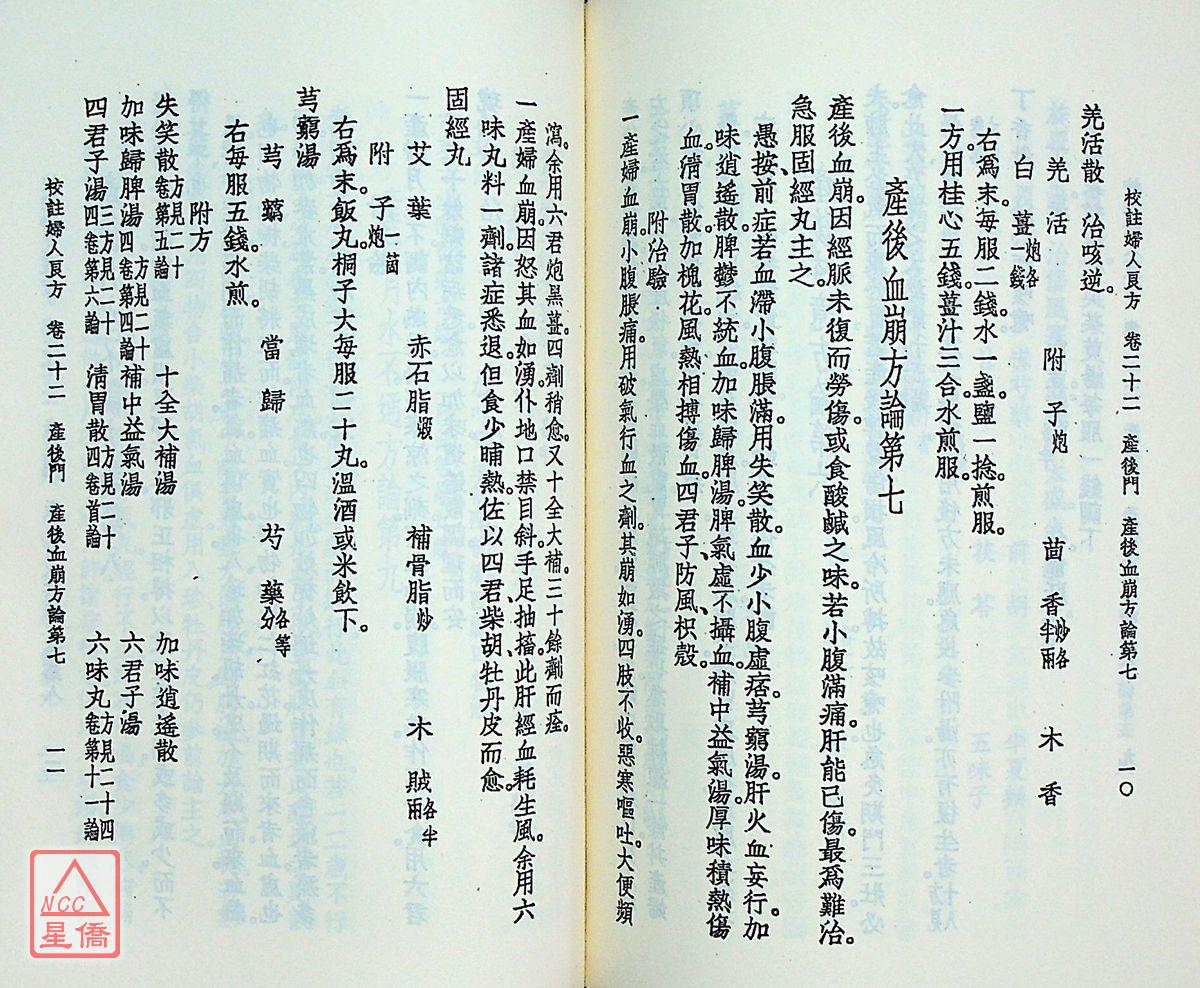 校註婦人良方　卷二十二　產後門　產後血崩方論第七　一〇
羌活散　治咳逆。
羌　活　附　子炮　茴　香炒各半兩　木　香
白　薑炮各一錢
右為末。每服二錢。水一盞。鹽一捻。煎服。
一方。用桂心五錢。薑汁三合。水煎服。
產後血崩方論第七
產後血崩。因經脈未復而勞傷。或食酸鹹之味。若小腹滿痛。肝能已傷。最為難治。
急服固經丸主之。
愚按、前症若血滯小腹脹滿。用失笑散。血少小腹虛痞。芎藭湯。肝火血妄行。加
味逍遙散。脾鬱不統血。加味歸脾湯。脾氣虛不攝血。補中益氣湯。厚味積熱傷
血。清胃散。加槐花。風熱相搏傷血。四君子、防風、枳殼。
附治驗
一產婦血崩。小腹脹痛。用破氣行血之劑。其崩如湧。四肢不收。惡寒嘔吐。大便頻
瀉。余用六君炮黑薑。四劑稍愈。又十全大補。三十餘劑而痊。
一產婦血崩。因怒其血如湧。仆地口禁目斜。手足抽搐。此肝經血耗生風。余用六
味丸料一劑。諸症悉退。但食少晡熱。佐以四君柴胡牡丹皮而愈。
固經丸
艾　葉　赤石脂煅　補骨脂炒　木　賊各半兩
附　子炮一箇
右為末。飯丸。桐子大。每服二十丸。溫酒或米飲下。
芎藭湯
芎　藭　當　歸　芍　藥各等分
右每服五錢。水煎。
附方
失笑散方見二十卷第五論　十全大補湯　加味逍遙散
加味歸脾湯方見二十四卷第四論　補中益氣湯　六君子湯
四君子湯三方見二十四卷第六論　清胃散方見二十四卷首論　六味丸方見二十四卷第十一論
校註婦人良方　卷二十二　產後門　產後血崩方論第七　一一
NCC
星僑